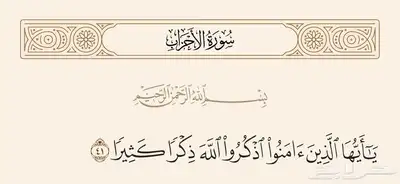 سُورَةُ الأَحۡزَابِ
بِسۡمِ ٱللَّهِ ٱلرَّحۡمَٰنِ ٱلرَّحِيمِ
يَٰٓأَيُّهَا ٱلَّذِينَ ءَامَنُواْ ٱذۡكُرُواْ ٱللَّهَ ذِكۡرٗا كَثِيرٗا ٤١